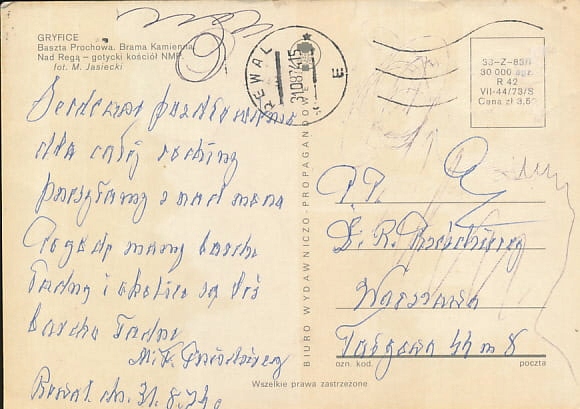 GRYFICE
Baszta Prochowa. Brama Kamienna.
Nad Regą — gotycki kościół NMP.
fot. M. Jasiecki
REWAL
31.08.74.15
E
38-Z-838
30 000 egz.
R 42
VII-44/73/S
Cena zł 3,50
BIURO WYDAWNICZO-PROPAGANDOWE
Serdeczne pozdrowienia
dla całej rodziny
przesyłamy z nad morza
Pogodę mamy bardzo
ładną i okolice są też
bardzo ładne
M. K.
Rewal dn. 31.8.74
P.P.
Z. R.
Warszawa
Targowa 44 m 8
ozn. kod.
poczta
Wszelkie prawa zastrzeżone